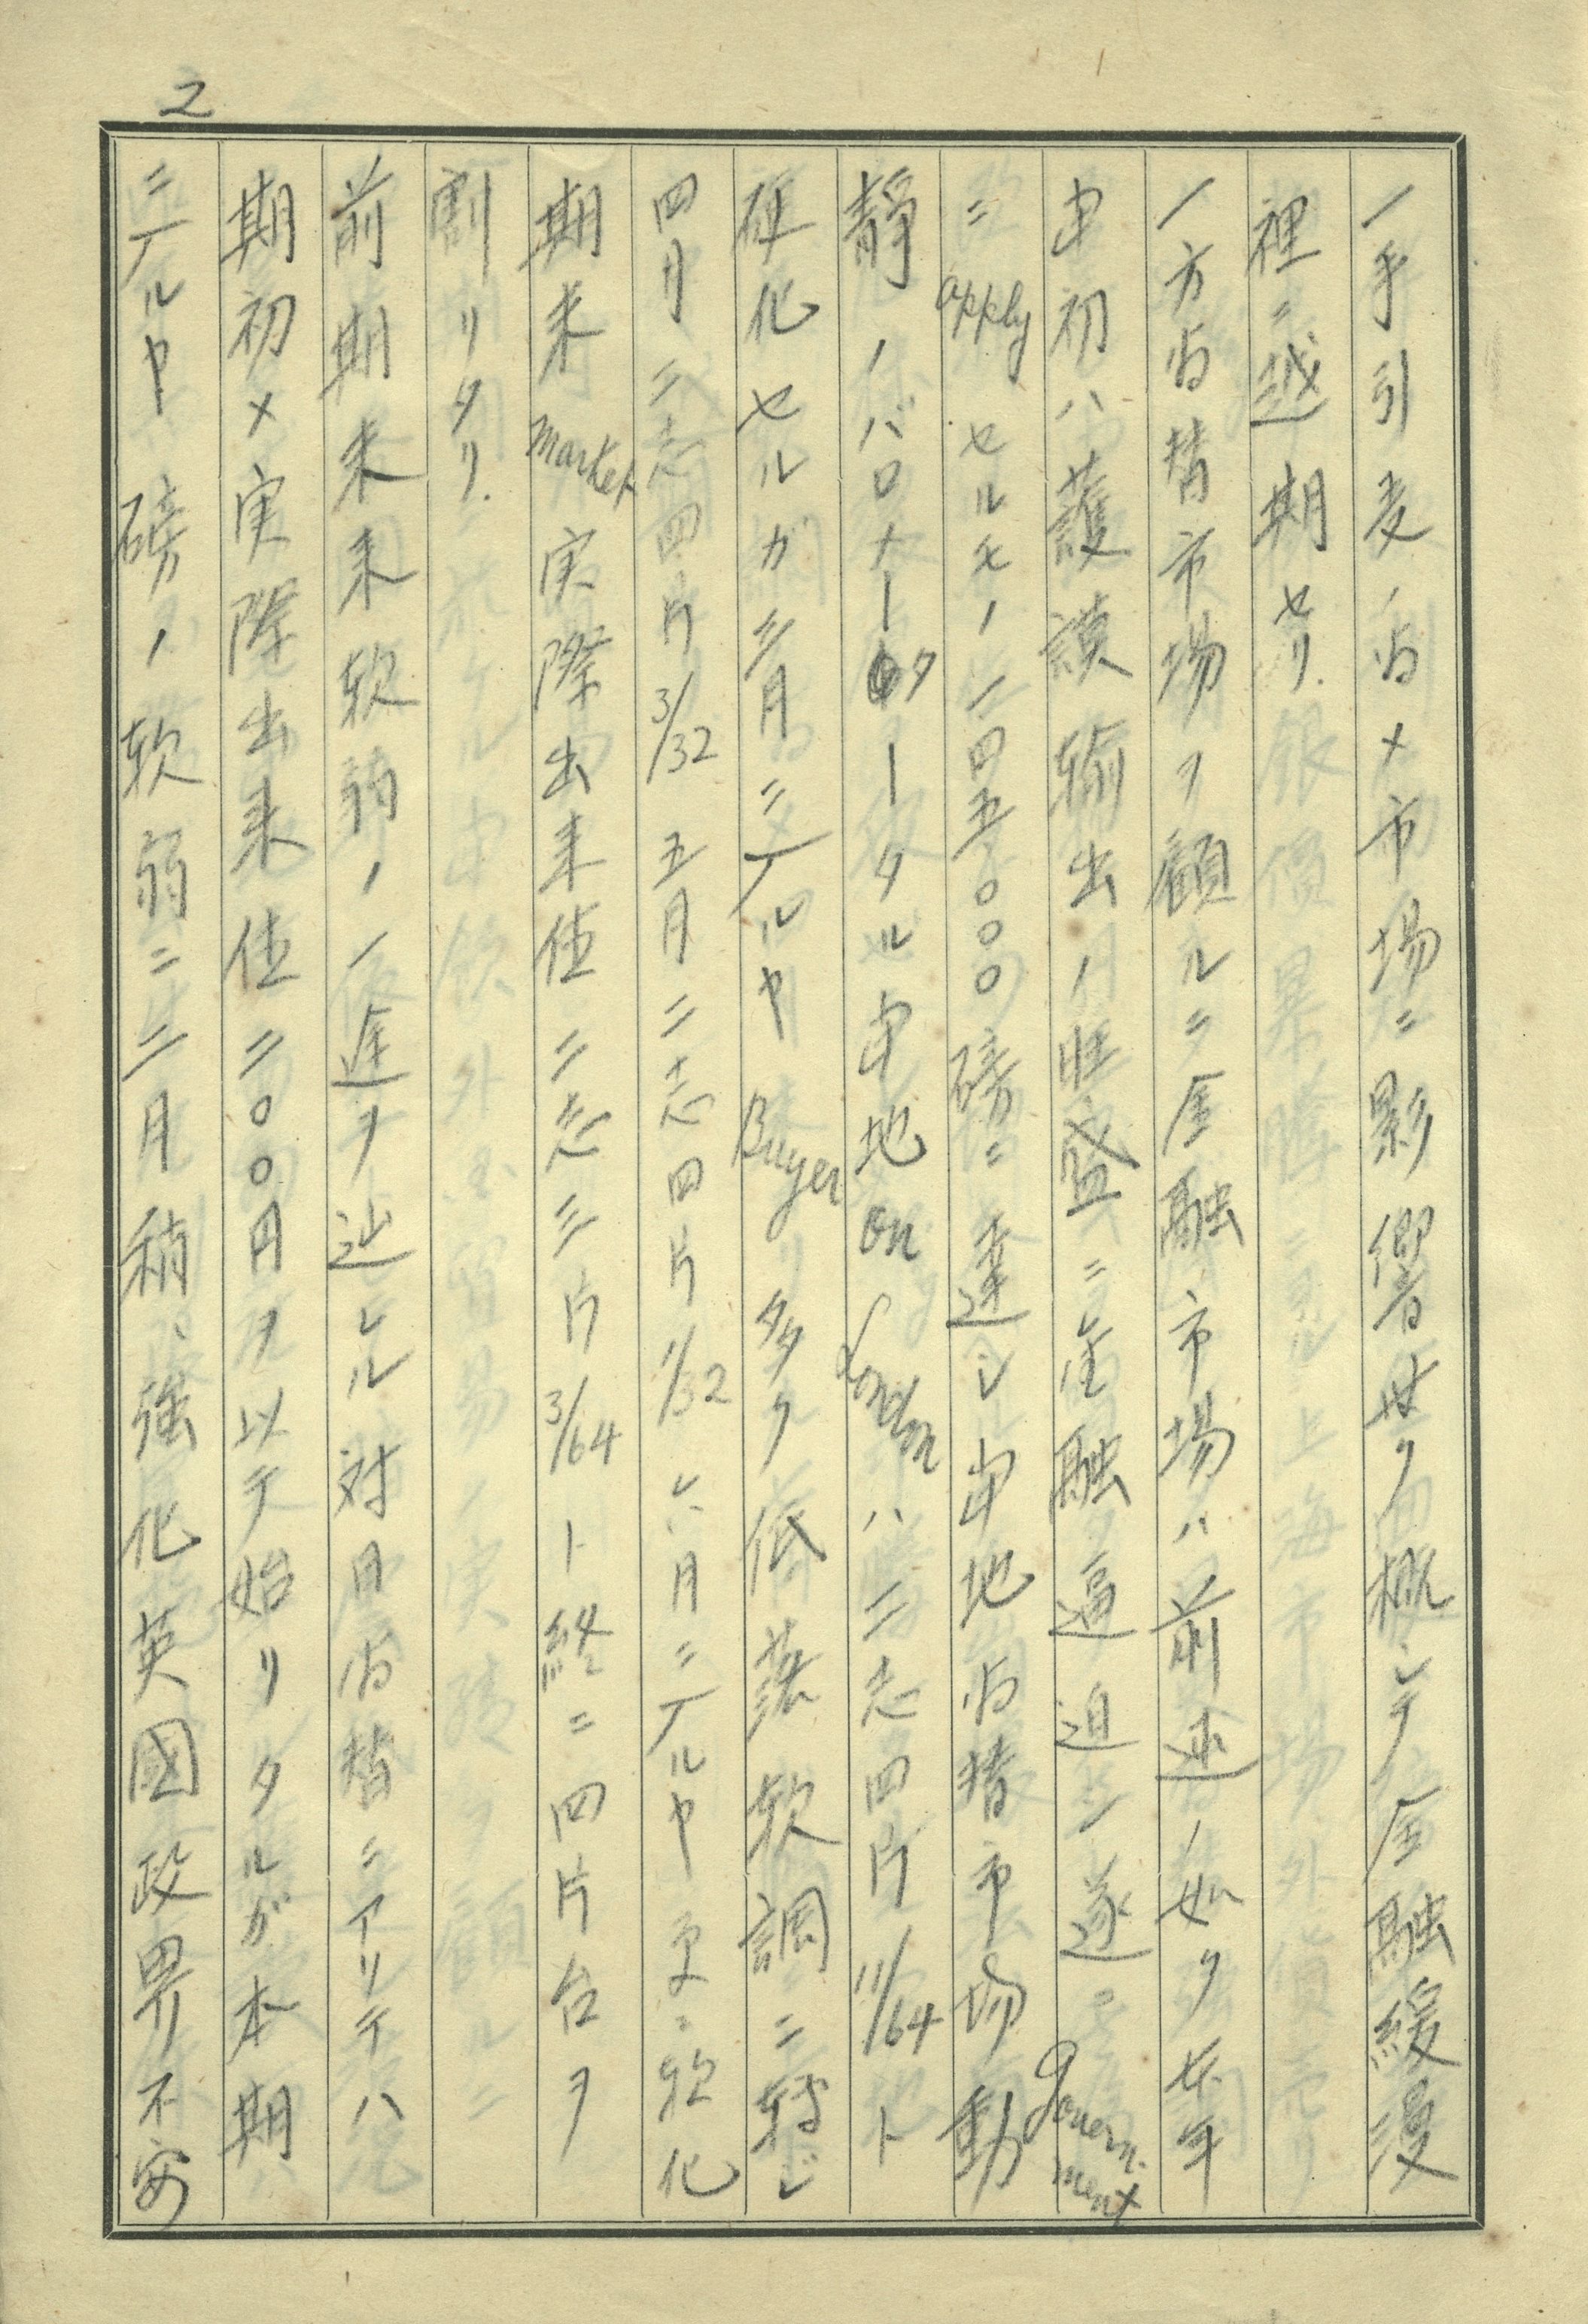 2
一手引麦ノ為メ市場ニ影響セク概シテ金融緩漫
裡ニ越期セリ.
一方為替市場ヲ顧ルニ金融市場ハ前述ノ如ク年
中初ハ護謨輸出ノ旺盛ニ金融逼迫シ遂ニ Government
ニ apply セルモノ二四五〇〇〇磅ニ達シ当地為替市場動
静ノバロメーターータル当地 on London ハ二志四片 11/64 ト
硬化セルガ三月ニ入ルヤ Buyer 多ク低落軟調ニ転ジ
四月二志四片 3/32 五月二志四片 1/32 六月ニ入ルヤ更ニ軟化
期末 market 実際出来値二志三片 3/64 ト終ニ四片台ヲ
割リタリ.
前期末来軟弱ノ一途ヲ辿レル対日為替ニアリテハ
期初メ実際出来値二〇〇円ヲ以テ始リタルガ本期
ニ入ルヤ磅ノ軟弱ニ二月稍、強化英國政界不安